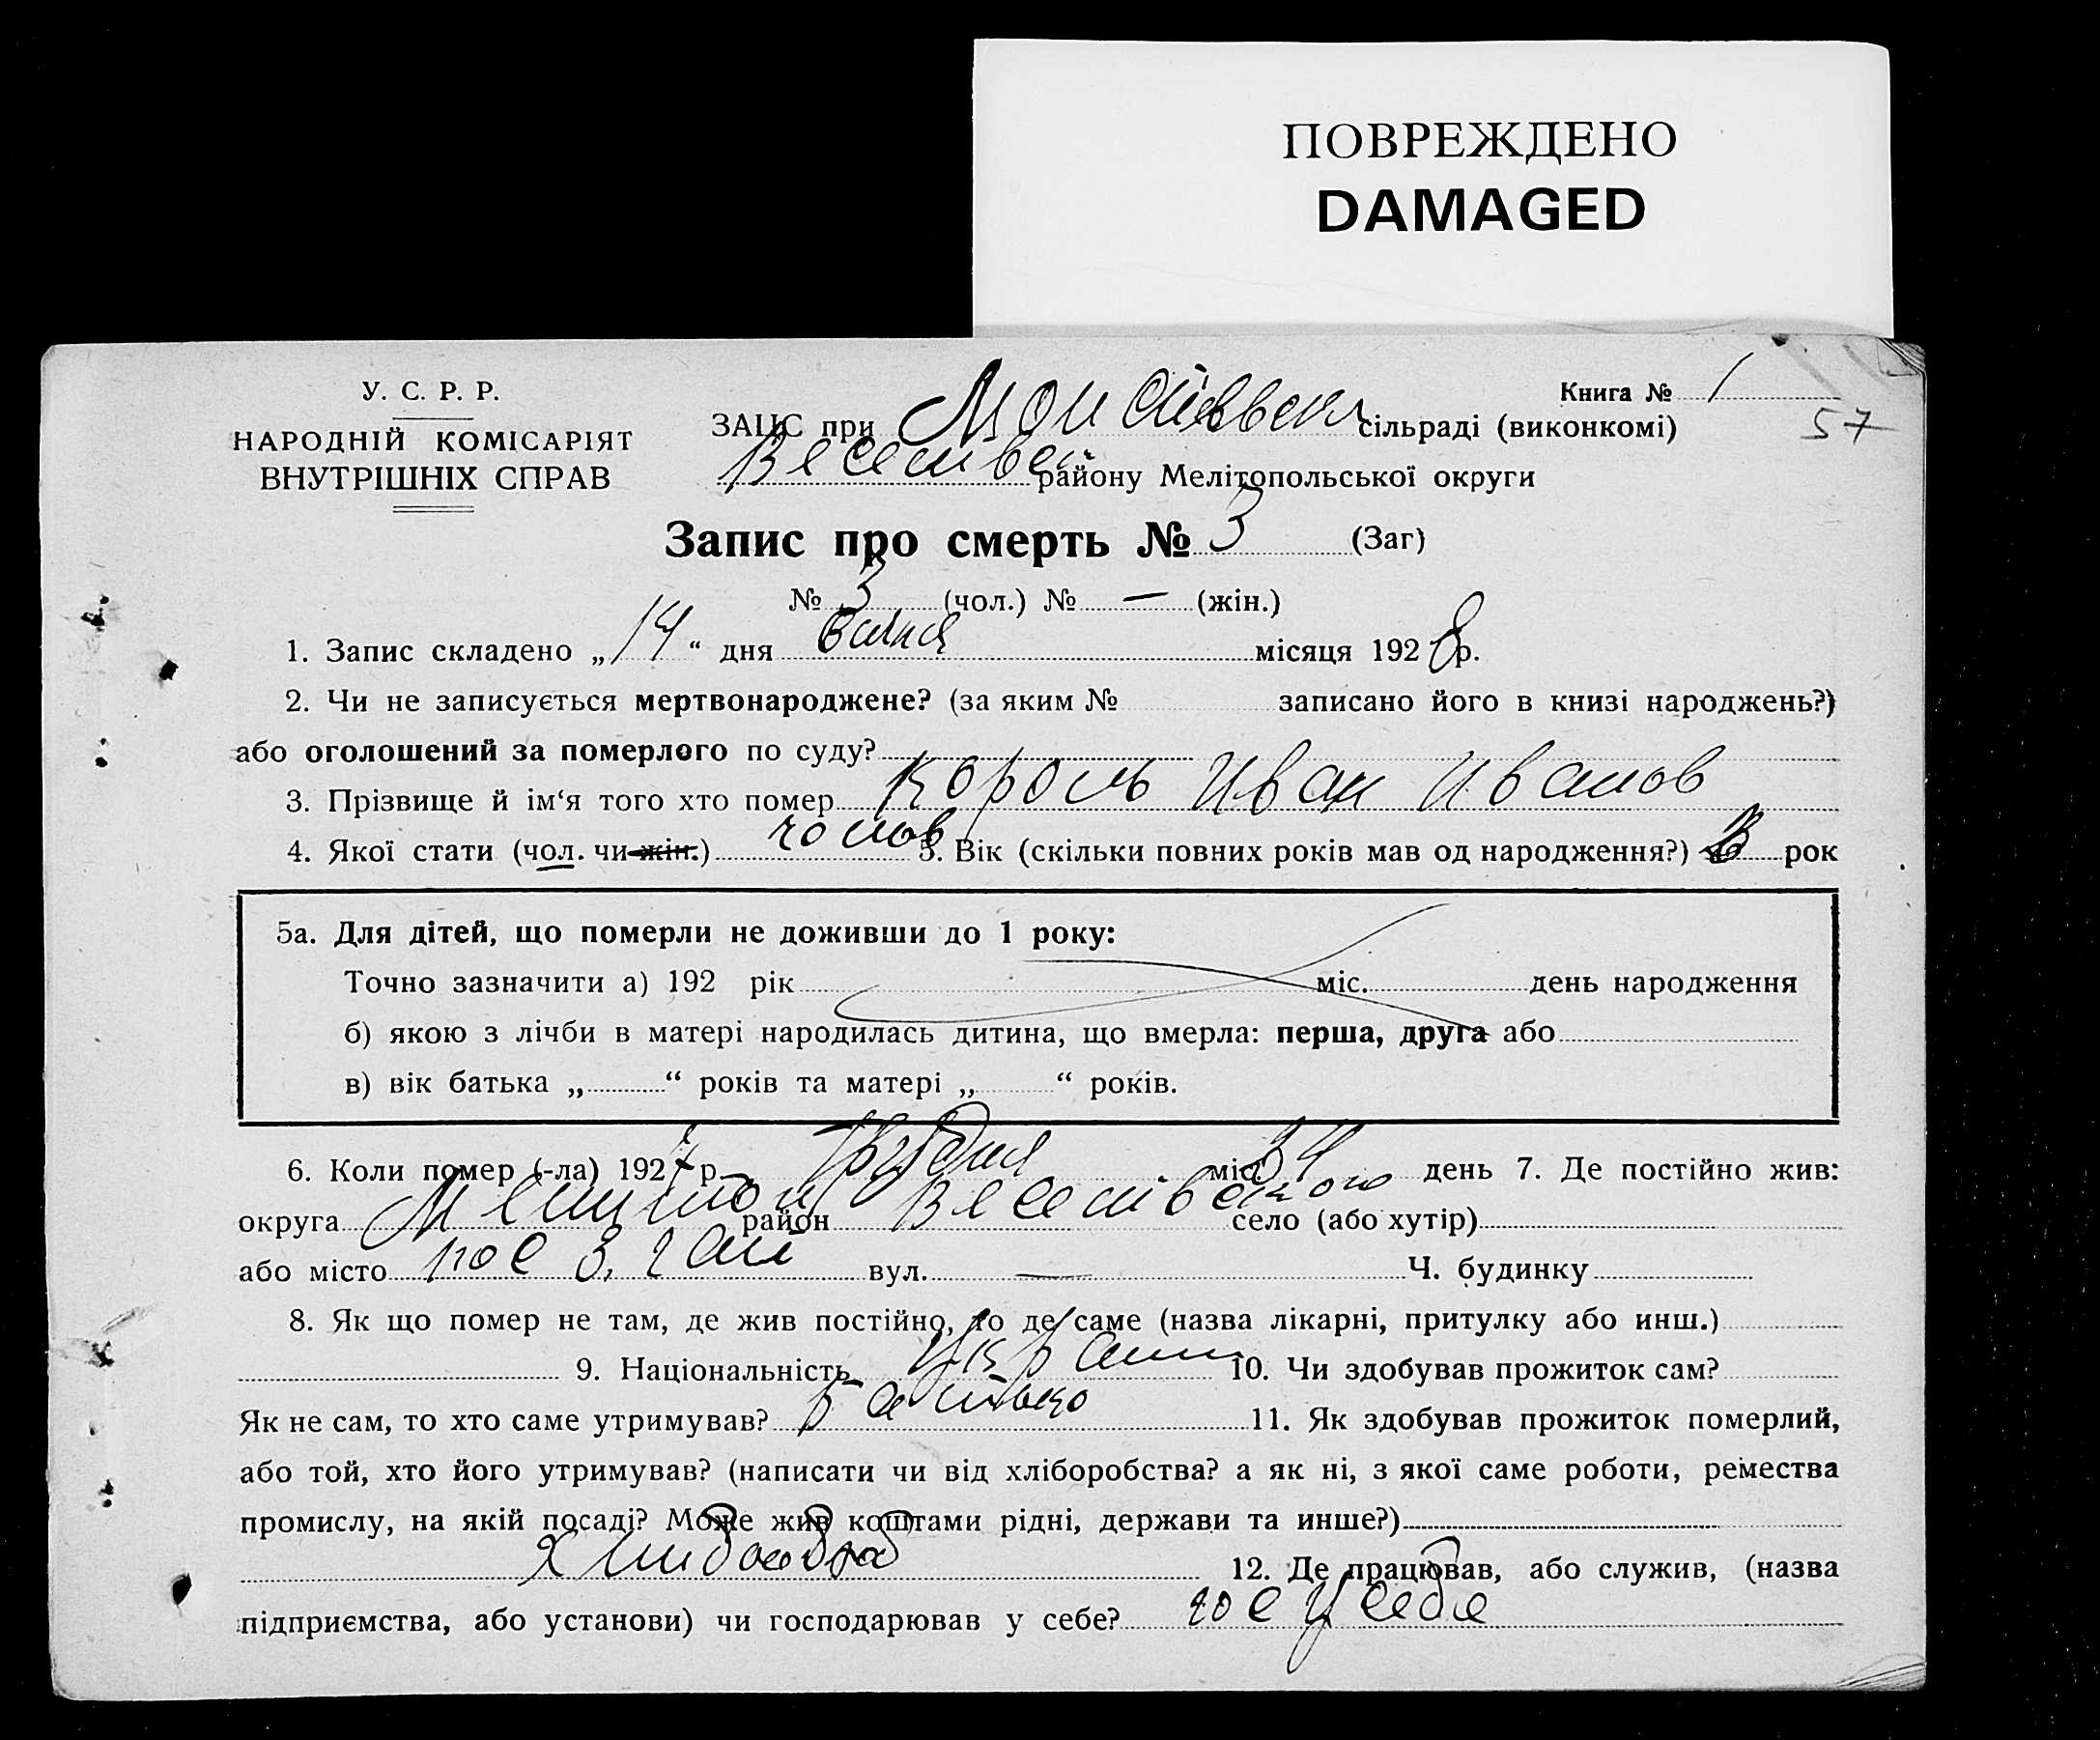 ПОВРЕЖДЕНО
DAMAGED
У. С. Р. Р.
НАРОДНІЙ КОМІСАРІЯТ
ВНУТРІШНІХ СПРАВ
Книга № 1
57
ЗАЦС при сільраді (виконкомі)
Веселівськ району Мелітопольської округи
Запис про смерть № 3 (Заг)
№ 3 (чол.) № — (жін.)
1. Запис складено „14“ дня січня місяця 1928 р.
2. Чи не записується мертвонароджене? (за яким № записано його в книзі народжень?)
або оголошений за померлого по суду?
3. Прізвище й ім‘я того хто помер Король Иван Иванов
4. Якої стати (чол. чи жін.) чолов 5. Вік (скільки повних років мав од народження?) рок
5а. Для дітей, що померли не доживши до 1 року:
Точно зазначити а) 192 рік міс. день народження
б) якою з лічби в матері народилась дитина, що вмерла: перша, друга або
в) вік батька „ “ років та матері „ “ років.
6. Коли помер (-ла) 1927 р. міс. день 7. Де постійно жив:
округа Мелитоп район Веселівского село (або хутір)
або місто пос з. Гай вул. — Ч. будинку
8. Як що помер не там, де жив постійно, то де саме (назва лікарні, притулку або инш.)
9. Національність Україн 10. Чи здобував прожиток сам?
Як не сам, то хто саме утримував? Батько 11. Як здобував прожиток померлий,
або той, хто його утримував? (написати чи від хліборобства? а як ні, з якої саме роботи, ремества
промислу, на якій посаді? Може жив коштами рідні, держави та инше?)
12. Де працював, або служив, (назва
підприємства, або установи) чи господарював у себе? гос у себе